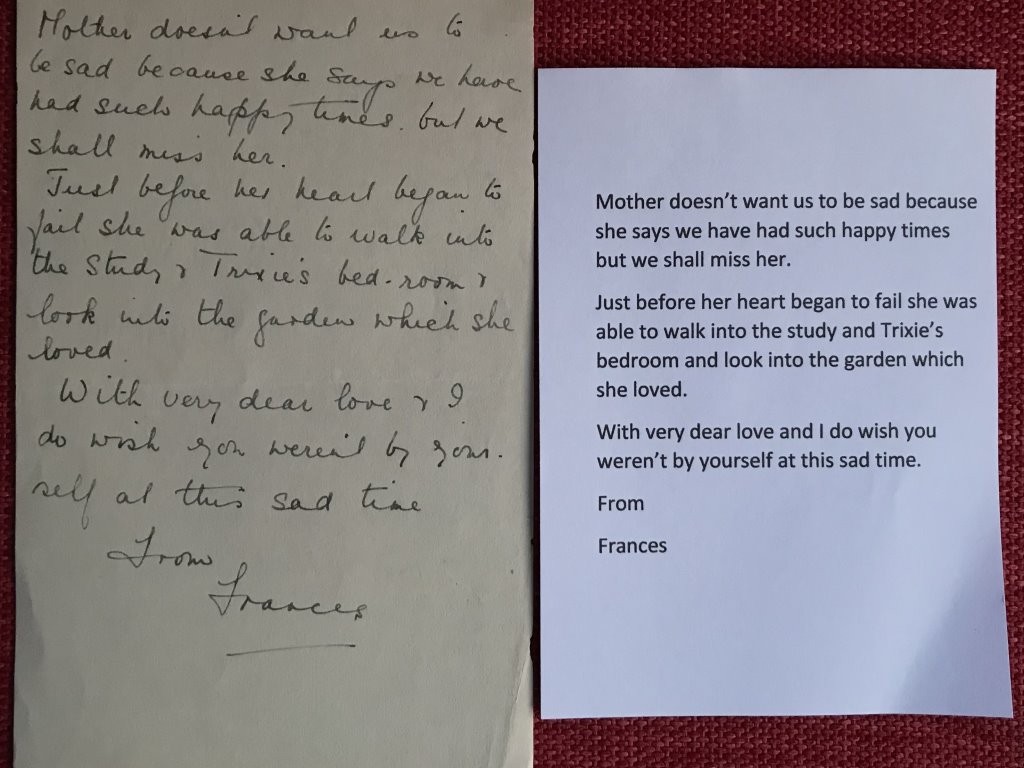 Mother doesn't want us to
be sad because she says we have
had such happy times. but we
shall miss her.
Just before her heart began to
fail she was able to walk into
the Study & Trixie's bed-room &
look into the garden which she
loved.
With very dear love & I
do wish you weren't by your-
self at this sad time
From
Frances
Mother doesn't want us to be sad because
she says we have had such happy times
but we shall miss her.
Just before her heart began to fail she was
able to walk into the study and Trixie's
bedroom and look into the garden which
she loved.
With very dear love and I do wish you
weren't by yourself at this sad time.
From
Frances